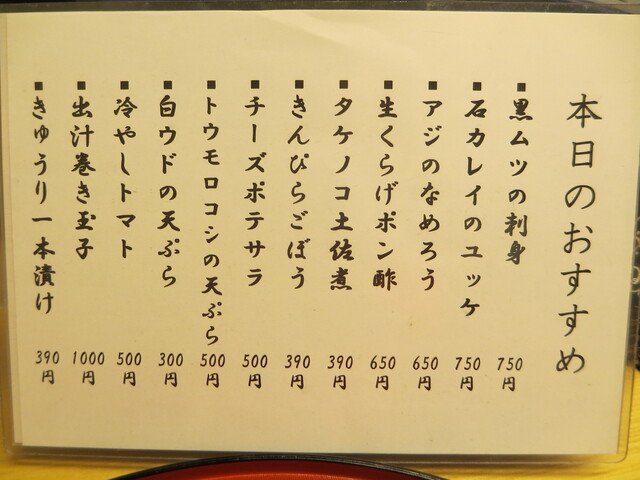 本日のおすすめ
■黒ムツの刺身 750円
■石カレイのユッケ 750円
■アジのなめろう 650円
■生くらげポン酢 650円
■タケノコ土佐煮 390円
■きんぴらごぼう 390円
■チーズポテサラ 500円
■トウモロコシの天ぷら 500円
■白ウドの天ぷら 300円
■冷やしトマト 500円
■出汁巻き玉子 1000円
■きゅうり一本漬け 390円